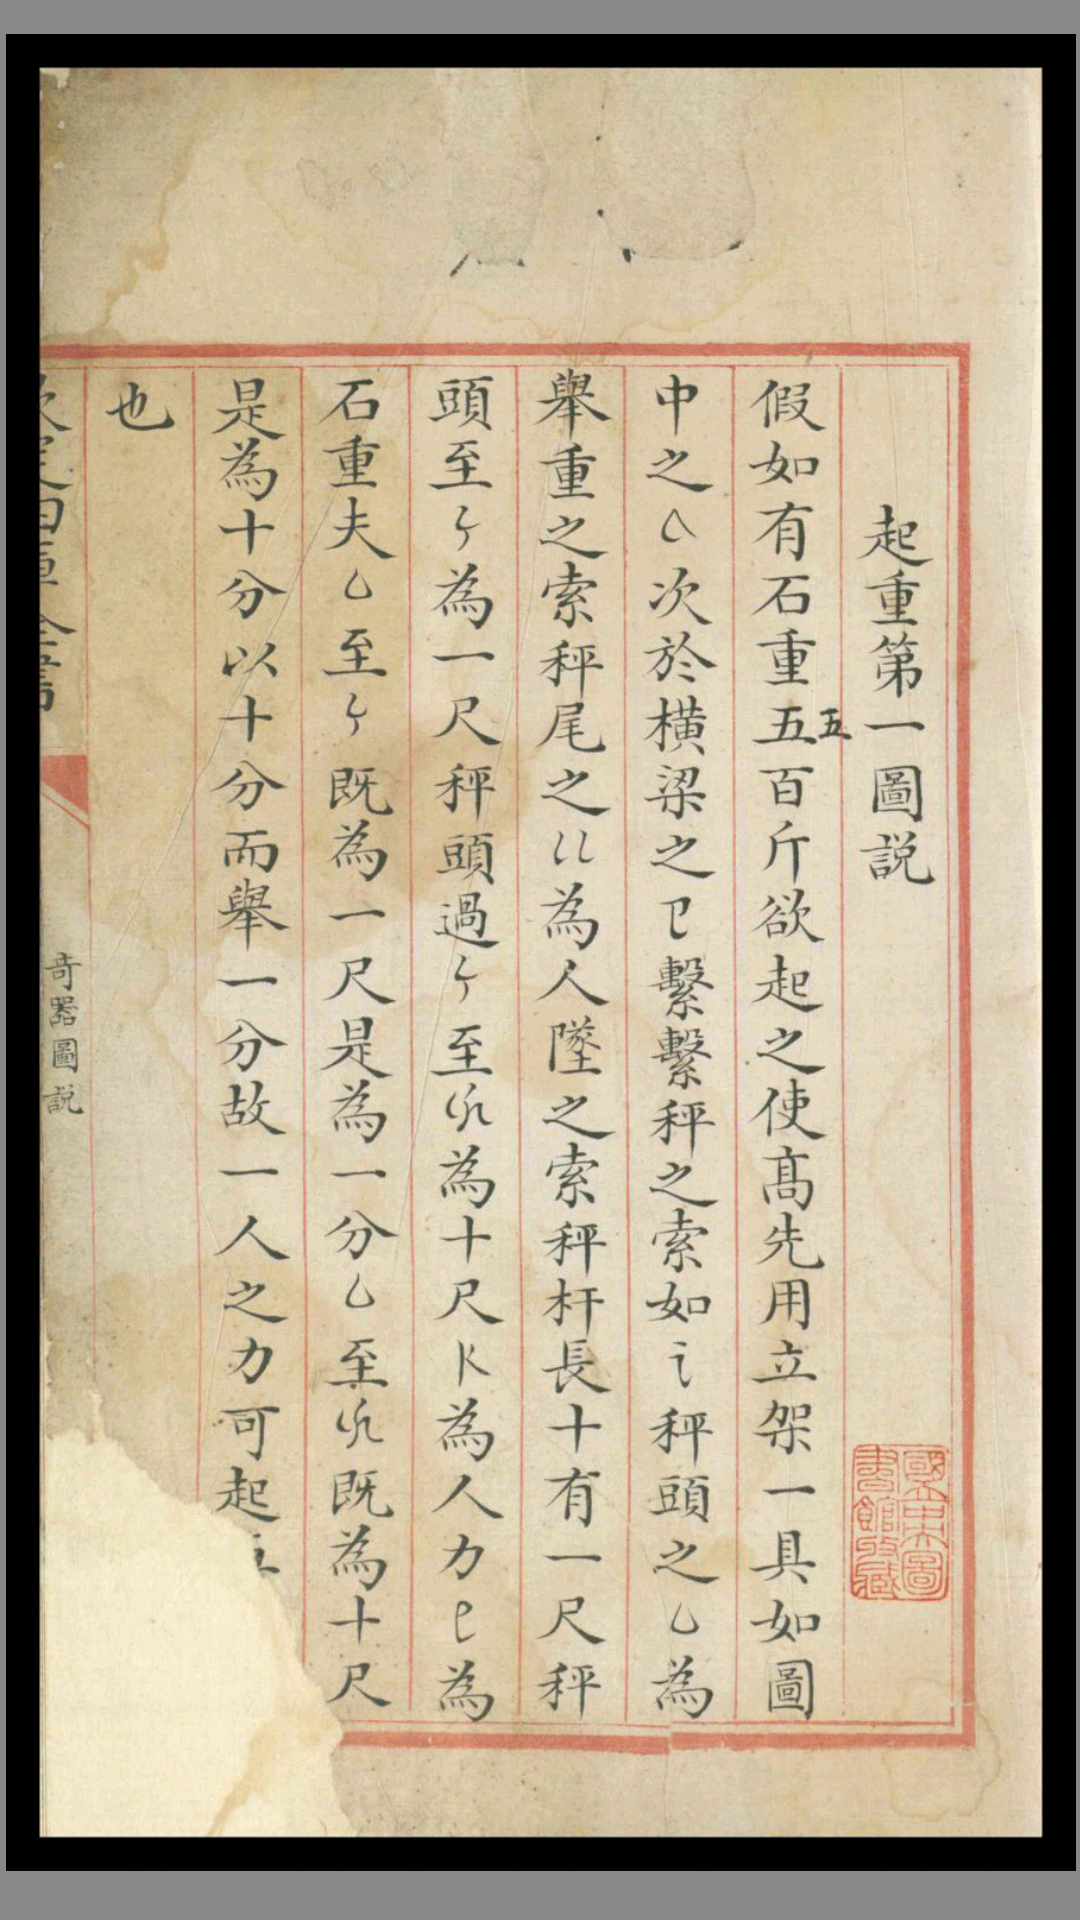 起重第一圖説
假如有石重五百斤欲起之使髙先用立架一具如圖
五
中之次於横梁之繫繫秤之索如讠秤頭之乚為
舉重之索秤尾之〢為人墜之索秤杆長十有一尺秤
頭至為一尺秤頭過至為十尺為人力為
石重夫乚至既為一尺是為一分乚至既為十尺
是為十分以十分而舉一分故一人之力可起
也
奇器圖説
國立中央圖書館收藏